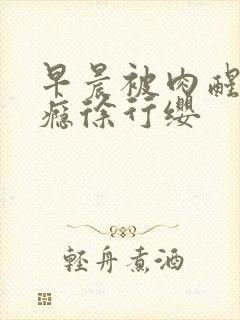 早晨被肉醒
瘾徐行缨
轻舟煮酒